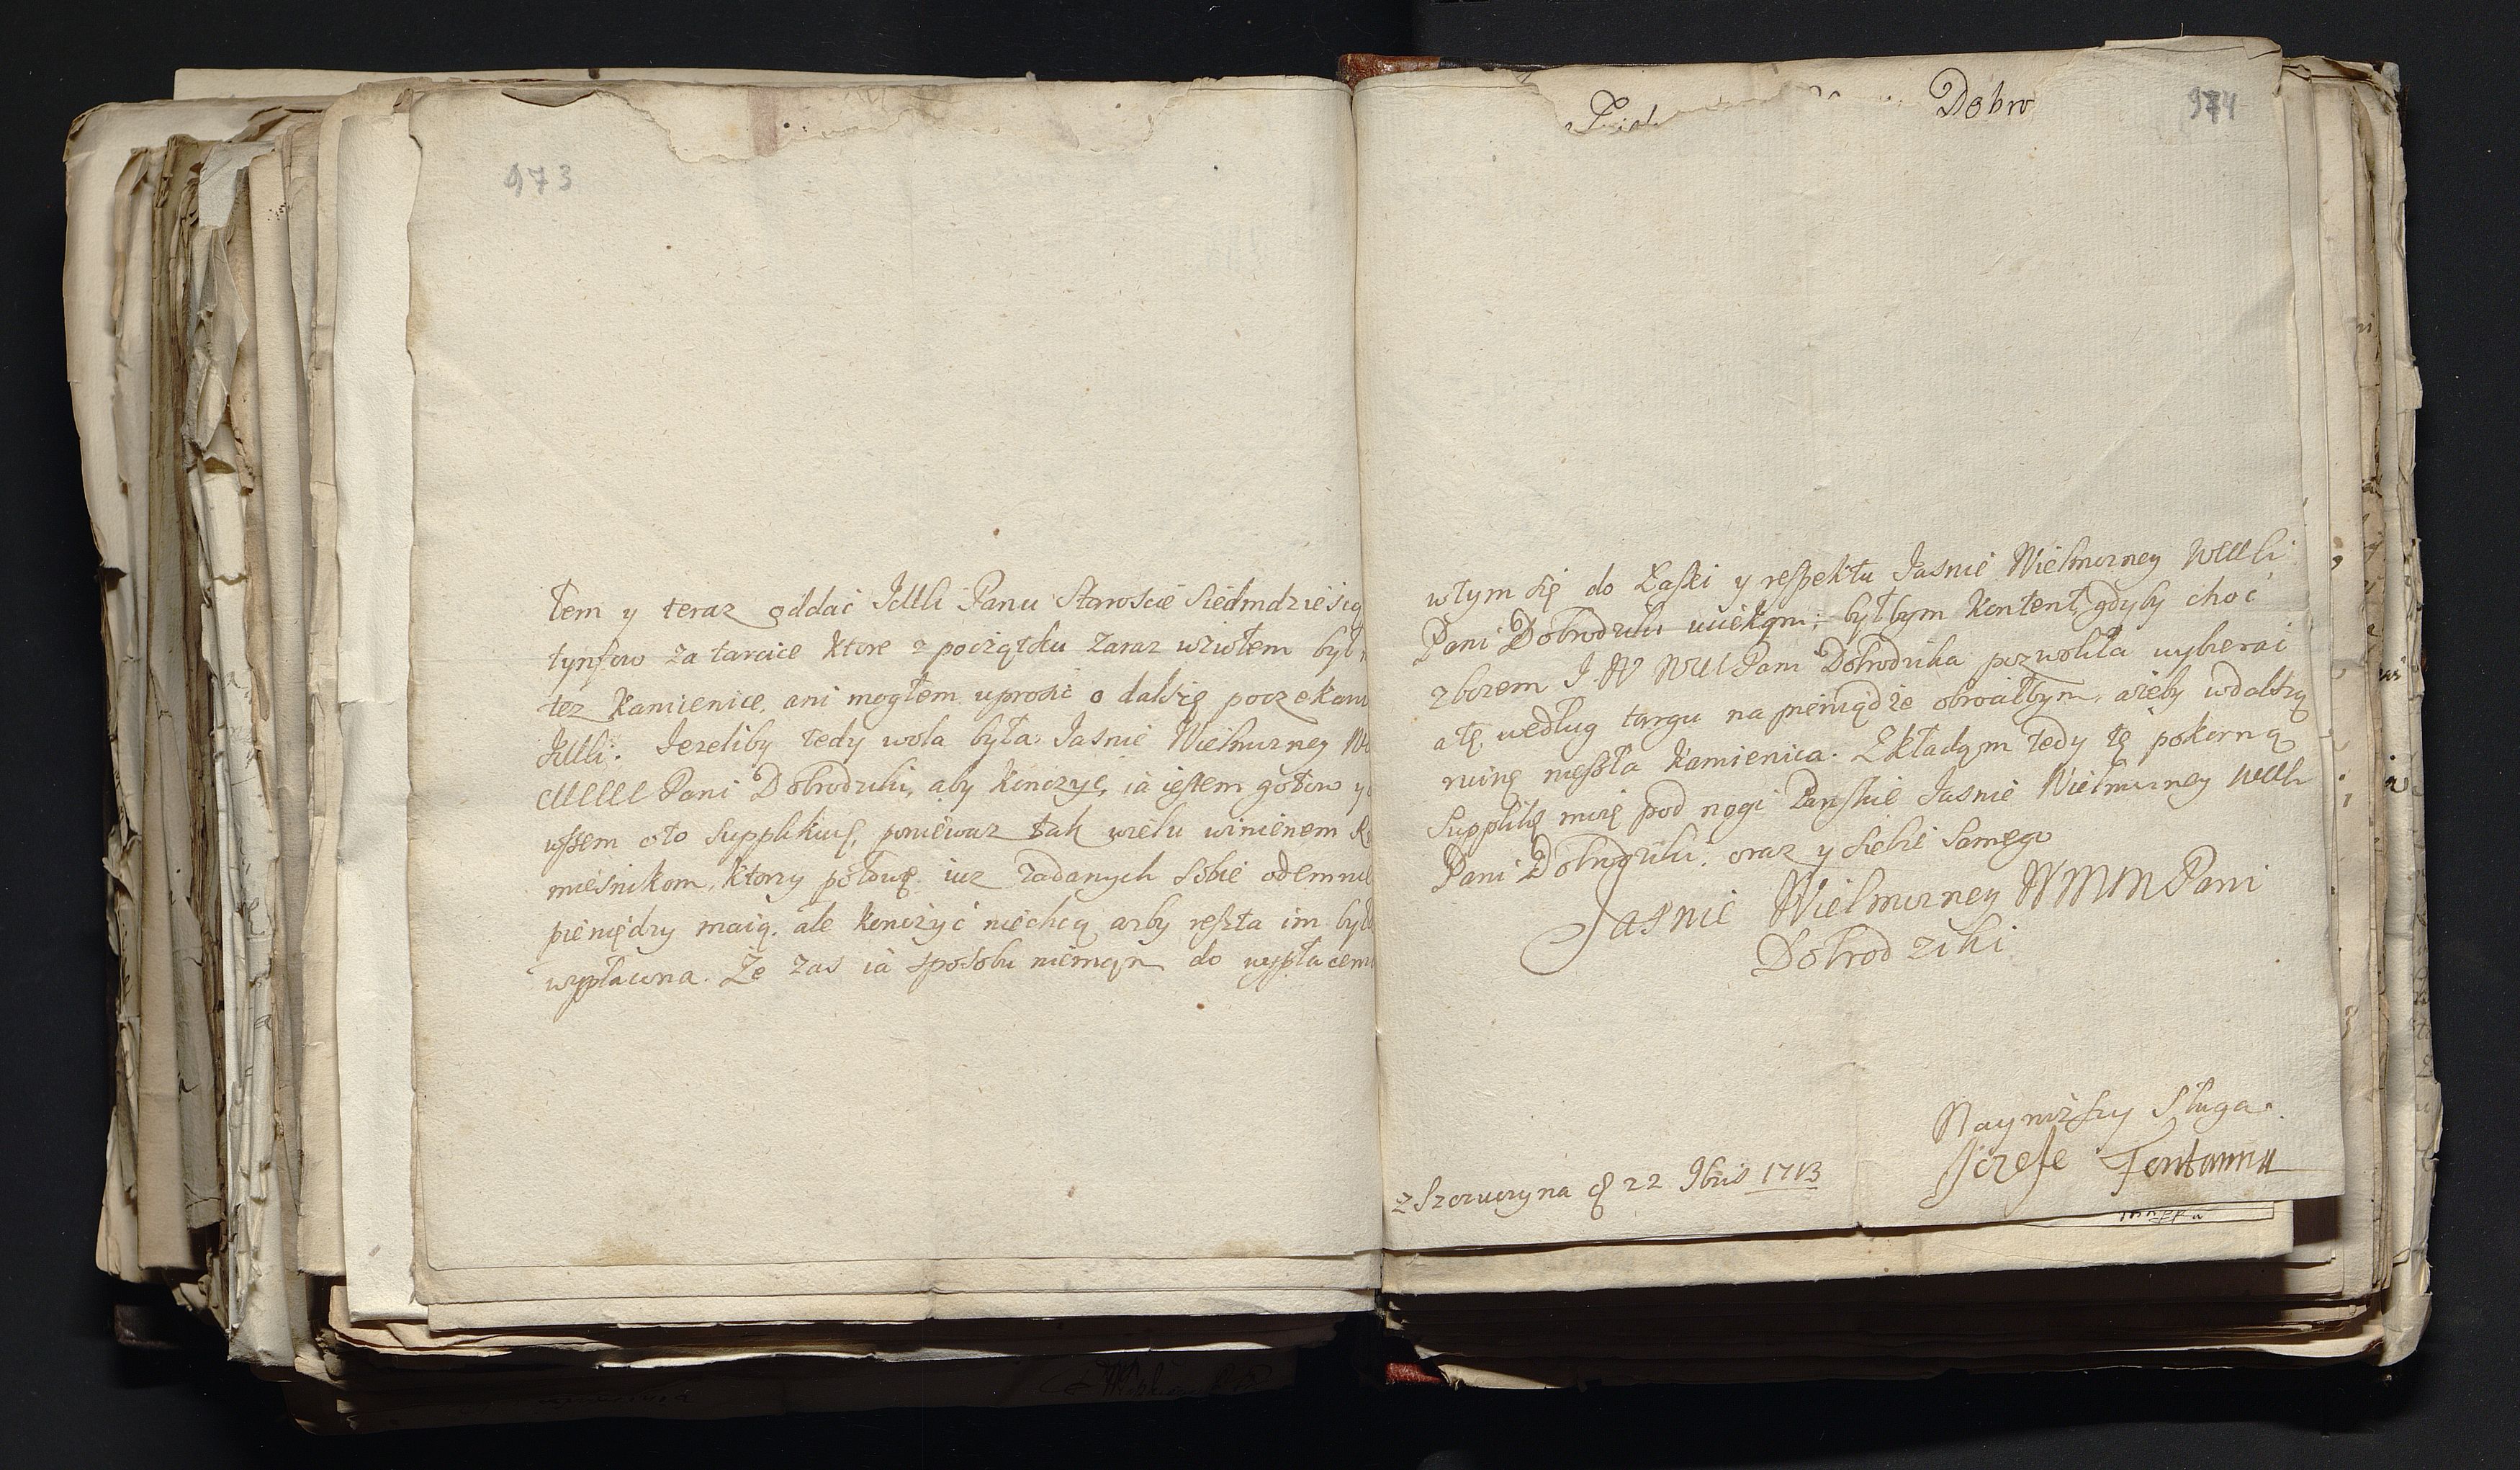 973
łem y teraz oddać JMMci Panu Staroscie Siedmdziesią
tynfow za tarcice ktore z początku zaraz wziołem
tez kamienice, ani mogłem uprosic o dalszę poczekani
JMMci. Jezeliby tedy wola była Jasnie Wielmozney
MMM Pani Dobrodziki, aby konczyć, ia iestem gotow
wssem oto Supplikuię, poniewaz tak wielu winienem
miesnikom, ktorzy połowę iuz zadanych sobie odemnie
pieniędzy maią, ale konczyć niechcą azby reszta im
wypłacona. Ze zas ia sposobu niemąm do wypłaceni
974
Dobro
wtym się do Łaski y respektu Jasnie Wielmozney WMMci
Pani Dobrodziki uciekąm; byłbym kontent, gdyby choć
zbozem J W WM Pani Dobrodzika pozwoliła wybierać
a tę według targu na pieniądze obrociłbym, azeby wdalszą
ruinę nieszła kamienica. Zkładąm tedy tę pokorną
Supplikę moię pod nogi Panskie Jasnie Wielmozney WMMci
Pani Dobrodziki, oraz y siebie samego
Jasnie Wielmozney WMM Pani
Dobrodziki
Nayniższy Sługa
Jozefe Fontanna
z Szczuczyna d 22 9bris 1713
mappa